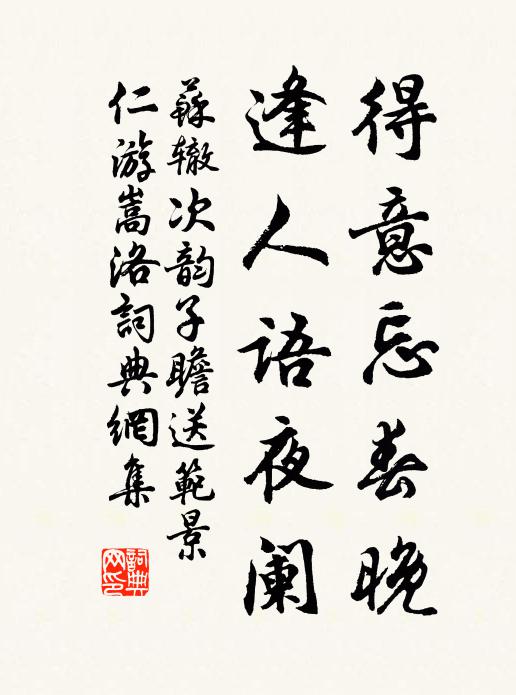 得意忘春晚
逢人语夜阑
蘇辙次韵子瞻送範景
仁游嵩洛詞典網集
詞典網印